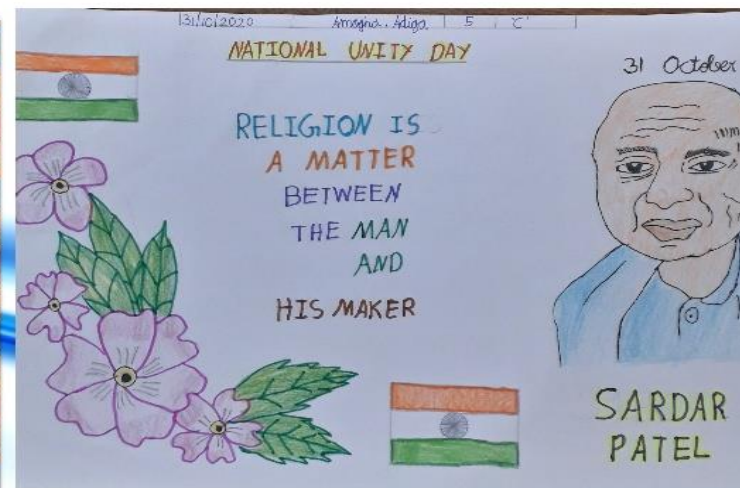 31/10/2020 Amogha . Adiga 5 'C'
NATIONAL UNITY DAY
31 October
RELIGION IS
A MATTER
BETWEEN
THE MAN
AND
HIS MAKER
SARDAR
PATEL